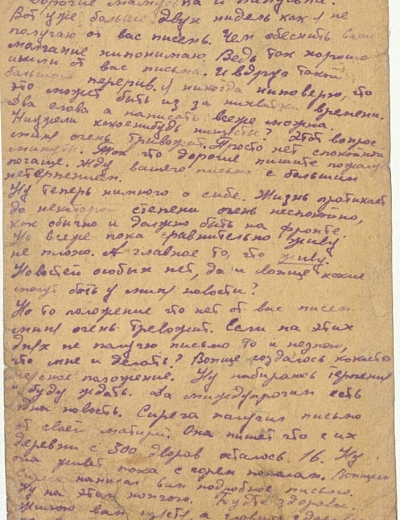 Дорогие мамушка и папушка.
Вот уже больше двух нидель как я не
получаю от вас писем. Чем обеснить ваше
малчание нипонимаю. Ведь так хорошо
от вас письма. И вдруг такой
большой перерыв. Я никогда ниповерю, что
это может быть из за нихватки времени.
Два слова а написать всеже можна.
Ниужели какоенибудь нищастье? Этот вопрос
миня очень тривожит. Просто нет спокойной
минуты. Так что дорогие пишите пожалу
почаще. Жду вашего письма с большим
нетерпением.
Ну теперь нимного о себе. Жизнь протикает
до некоторой степени очень неспокойно,
как обычно и должно быть на фронте.
Но всеже пока сравнительно живу
не плохо. А главное то, что живу.
Новостей особых нет, да и вопще какие
могут быть у миня новости?
Но то положение что нет от вас писем
миня очень тревожит. Если на этих
днях не получу письмо то и незною,
что мне и делать? Вопще создалось какоето
положение. Ну набираюсь терпения
и буду ждать. Да между прочим есть
одна новость. Сирежа палучил письмо
от своей матири. Она пишет что с их
деревни с 500 дворов осталось 16. Ну
она живет пока с горем пополам.
написал вам подробное письмо.
Ну на этом кончаю. Будте здоровы.
Желаю вам щастья а главное